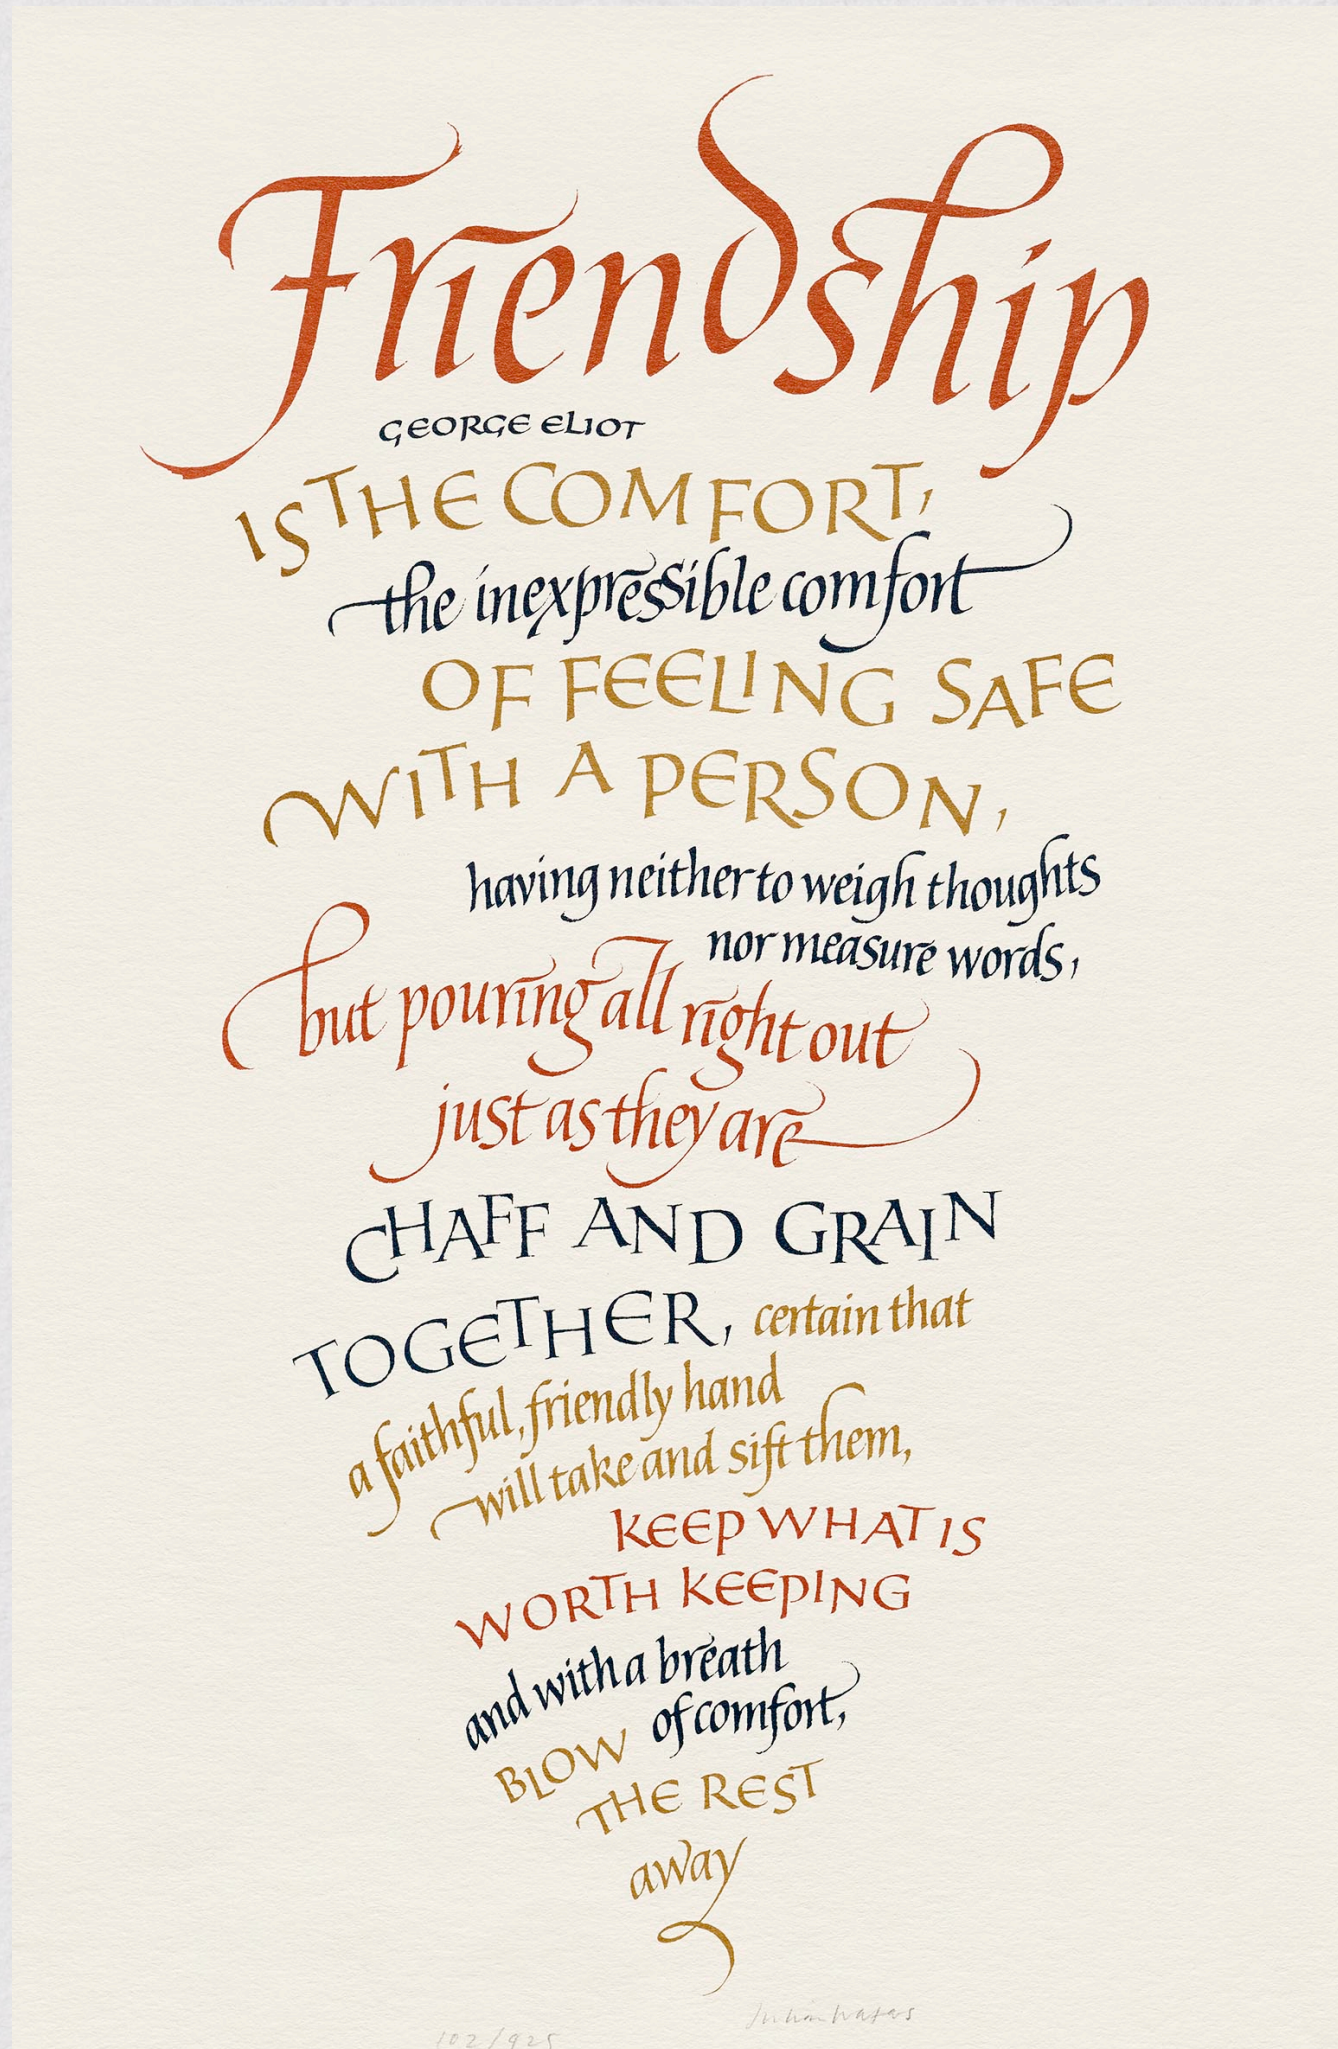 Friendship
GEORGE ELIOT
IS THE COMFORT,
the inexpressible comfort
OF FEELING SAFE
WITH A PERSON,
having neither to weigh thoughts
nor measure words,
but pouring all right out
just as they are
CHAFF AND GRAIN
TOGETHER, certain that
a faithful, friendly hand
will take and sift them,
KEEP WHAT IS
WORTH KEEPING
and with a breath
of comfort,
BLOW
THE REST
away
102/925